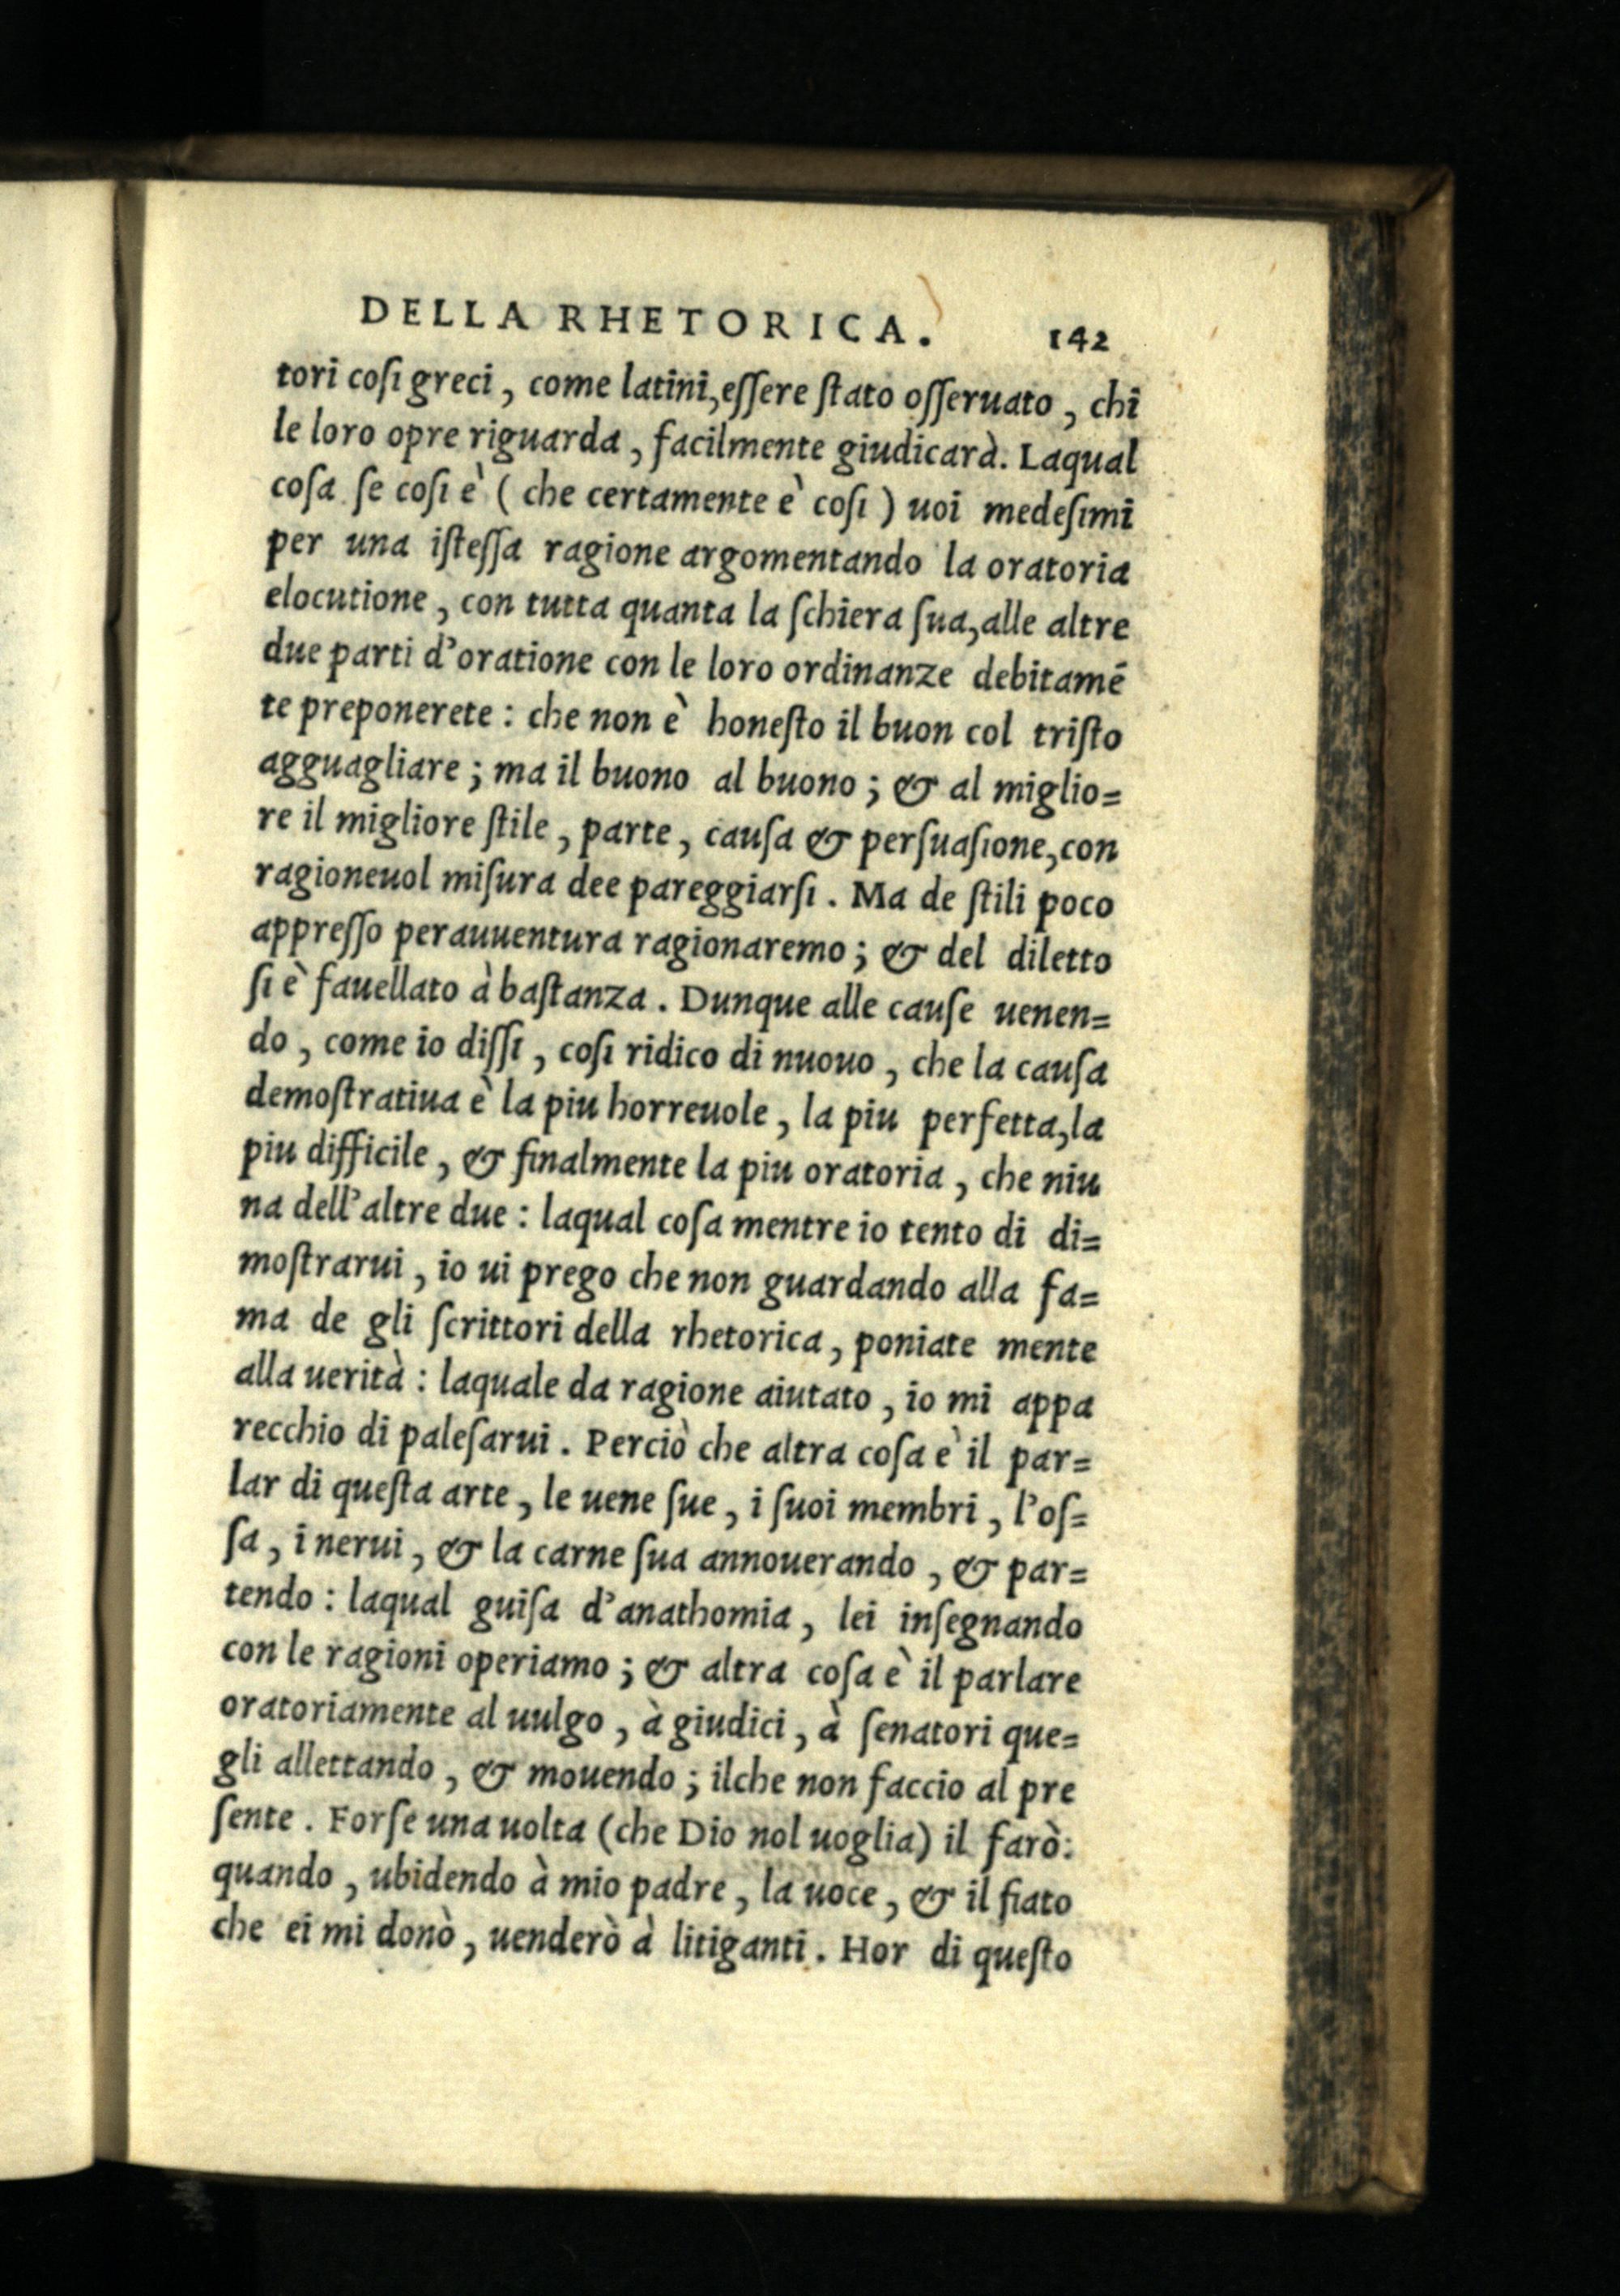 DELLA RHETORICA. 142
tori coſi greci, come latini, eſſere ſtato oſſeruato, chi
le loro opre riguarda, facilmente giudicarà. Laqual
coſa ſe coſi è (che certamente è coſi) uoi medeſimi
per una iſteſſa ragione argomentando la oratoria
elocutione, con tutta quanta la ſchiera ſua, alle altre
due parti d'oratione con le loro ordinanze debitamē
te preponerete: che non è honeſto il buon col triſto
agguagliare; ma il buono al buono; & al miglio=
re il migliore ſtile, parte, cauſa & perſuaſione, con
ragioneuol miſura dee pareggiarſi. Ma de ſtili poco
appreſſo perauuentura ragionaremo; & del diletto
ſi è fauellato à baſtanza. Dunque alle cauſe uenen=
do, come io diſſi, coſi ridico di nuouo, che la cauſa
demoſtratiua è la piu horreuole, la piu perfetta, la
piu difficile, & finalmente la piu oratoria, che niu
na dell'altre due: laqual coſa mentre io tento di di=
moſtrarui, io ui prego che non guardando alla fa=
ma de gli ſcrittori della rhetorica, poniate mente
alla uerità: laquale da ragione aiutato, io mi appa
recchio di paleſarui. Perciò che altra coſa è il par=
lar di queſta arte, le uene ſue, i ſuoi membri, l'oſ=
ſa, i nerui, & la carne ſua annouerando, & par=
tendo: laqual guiſa d'anathomia, lei inſegnando
con le ragioni operiamo; & altra coſa è il parlare
oratoriamente al uulgo, à giudici, à ſenatori que=
gli allettando, & mouendo; ilche non faccio al pre
ſente. Forſe una uolta (che Dio nol uoglia) il farò:
quando, ubidendo à mio padre, la uoce, & il fiato
che ei mi donò, uenderò à litiganti. Hor di queſto